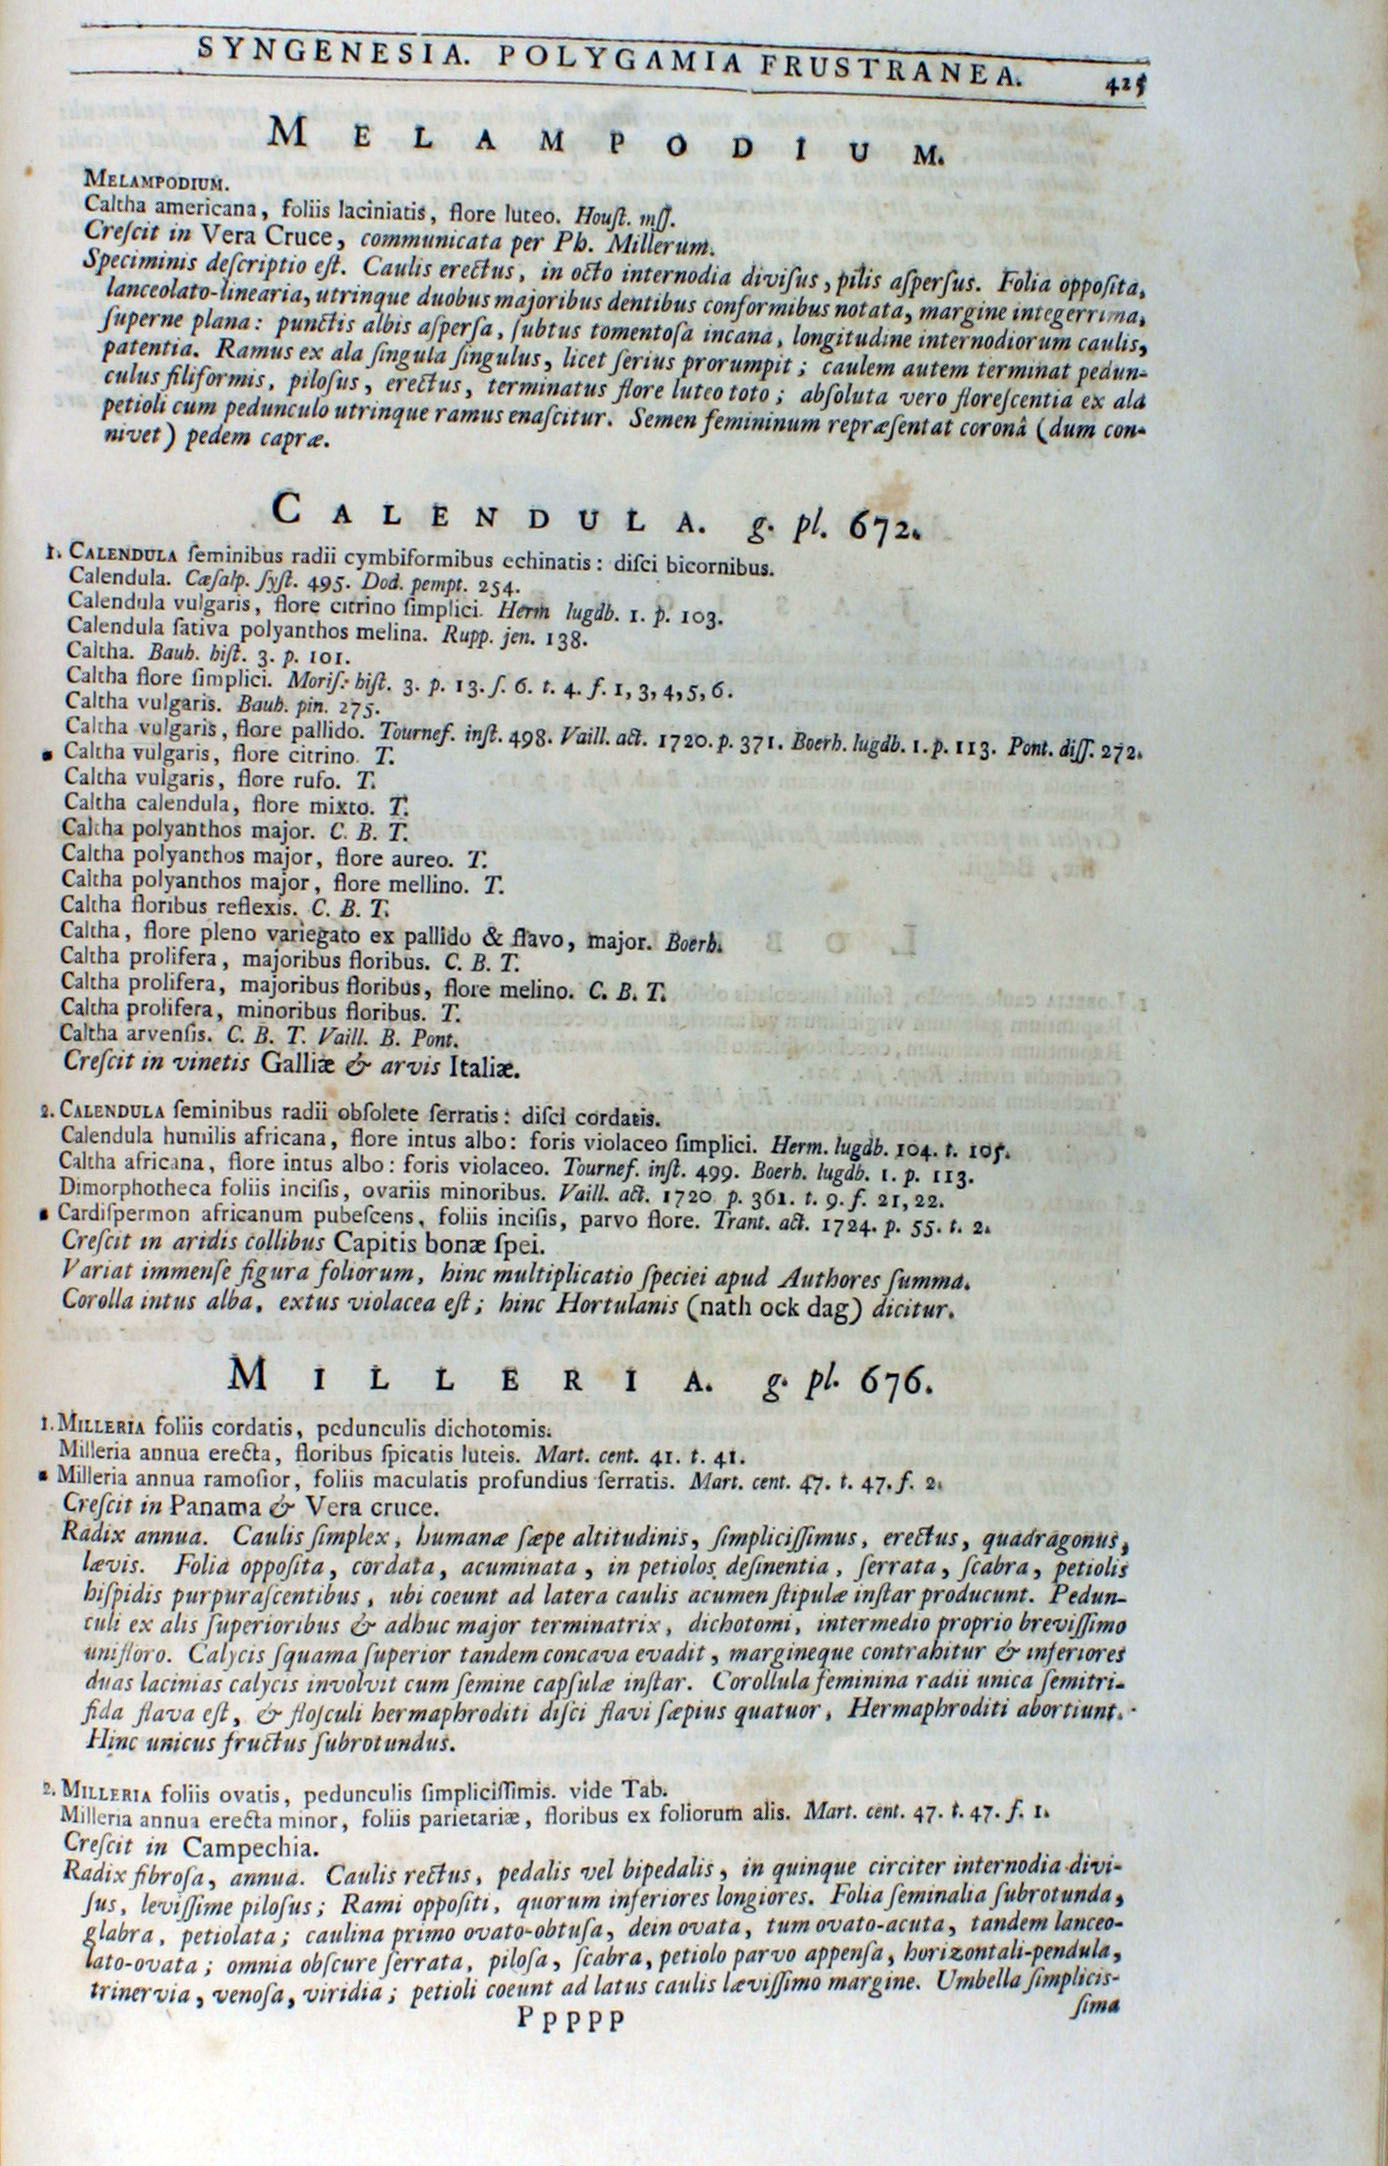 SYNGENESIA. POLYGAMIA FRUSTRANEA. 425
MELAMPODIUM.
MELAMPODIUM.
Caltha americana, foliis laciniatis, flore luteo. Houſt. mſſ.
Creſcit in Vera Cruce, communicata per Ph. Millerum.
Speciminis deſcriptio eſt. Caulis erectus, in octo internodia diviſus, pilis aſperſus. Folia oppoſita,
lanceolato-linearia, utrinque duobus majoribus dentibus conformibus notata, margine integerrima,
ſuperne plana: punctis albis aſperſa, ſubtus tomentoſa incana, longitudine internodiorum caulis,
patentia. Ramus ex ala ſingula ſingulus, licet ſerius prorumpit; caulem autem terminat pedun-
culus filiformis, piloſus, erectus, terminatus flore luteo toto; abſoluta vero floreſcentia ex ala
petioli cum pedunculo utrinque ramus enaſcitur. Semen femininum repræſentat coronâ (dum con-
nivet) pedem capræ.
CALENDULA. g. pl. 672.
1. CALENDULA ſeminibus radii cymbiformibus echinatis: diſci bicornibus.
Calendula. Cæſalp. ſyſt. 495. Dod. pempt. 254.
Calendula vulgaris, flore citrino ſimplici. Herm lugdb. 1. p. 103.
Calendula ſativa polyanthos melina. Rupp. jen. 138.
Caltha. Bauh. hiſt. 3. p. 101.
Caltha flore ſimplici. Moriſ. hiſt. 3. p. 13. ſ. 6. t. 4. f. 1, 3, 4, 5, 6.
Caltha vulgaris. Bauh. pin. 275.
Caltha vulgaris, flore pallido. Tournef. inſt. 498. Vaill. act. 1720. p. 371. Boerh. lugdb. 1. p. 113. Pont. diſſ. 272.
Caltha vulgaris, flore citrino. T.
Caltha vulgaris, flore rufo. T.
Caltha calendula, flore mixto. T.
Caltha polyanthos major. C. B. T.
Caltha polyanthos major, flore aureo. T.
Caltha polyanthos major, flore mellino. T.
Caltha floribus reflexis. C. B. T.
Caltha, flore pleno variegato ex pallido & flavo, major. Boerh.
Caltha prolifera, majoribus floribus. C. B. T.
Caltha prolifera, majoribus floribus, flore melino. C. B. T.
Caltha prolifera, minoribus floribus. T.
Caltha arvenſis. C. B. T. Vaill. B. Pont.
Creſcit in vinetis Galliæ & arvis Italiæ.
2. CALENDULA ſeminibus radii obſolete ſerratis: diſci cordatis.
Calendula humilis africana, flore intus albo: foris violaceo ſimplici. Herm. lugdb. 104. t. 105.
Caltha africana, flore intus albo: foris violaceo. Tournef. inſt. 499. Boerh. lugdb. 1. p. 113.
Dimorphotheca foliis inciſis, ovariis minoribus. Vaill. act. 1720. p. 361. t. 9. f. 21, 22.
Cardiſpermon africanum pubeſcens, foliis inciſis, parvo flore. Trant. act. 1724. p. 55. t. 2.
Creſcit in aridis collibus Capitis bonæ ſpei.
Variat immenſe figura foliorum, hinc multiplicatio ſpeciei apud Authores ſumma.
Corolla intus alba, extus violacea eſt; hinc Hortulanis (nath ock dag) dicitur.
MILLERIA. g. pl. 676.
1. MILLERIA foliis cordatis, pedunculis dichotomis.
Milleria annua erecta, floribus ſpicatis luteis. Mart. cent. 41. t. 41.
Milleria annua ramoſior, foliis maculatis profundius ſerratis. Mart. cent. 47. t. 47. f. 2.
Creſcit in Panama & Vera cruce.
Radix annua. Caulis ſimplex, humanæ ſæpe altitudinis, ſimpliciſſimus, erectus, quadragonus,
lævis. Folia oppoſita, cordata, acuminata, in petiolos deſinentia, ſerrata, ſcabra, petiolis
hiſpidis purpuraſcentibus, ubi coeunt ad latera caulis acumen ſtipulæ inſtar producunt. Pedun-
culi ex alis ſuperioribus & adhuc major terminatrix, dichotomi, intermedio proprio breviſſimo
unifloro. Calycis ſquama ſuperior tandem concava evadit, margineque contrahitur & inferiores
duas lacinias calycis involvit cum ſemine capſulæ inſtar. Corollula feminina radii unica ſemitri-
fida flava eſt, & floſculi hermaphroditi diſci flavi ſæpius quatuor, Hermaphroditi abortiunt.
Hinc unicus fructus ſubrotundus.
2. MILLERIA foliis ovatis, pedunculis ſimpliciſſimis. vide Tab.
Milleria annua erecta minor, foliis parietariæ, floribus ex foliorum alis. Mart. cent. 47. t. 47. f. 1.
Creſcit in Campechia.
Radix fibroſa, annua. Caulis rectus, pedalis vel bipedalis, in quinque circiter internodia divi-
ſus, leviſſime piloſus; Rami oppoſiti, quorum inferiores longiores. Folia ſeminalia ſubrotunda,
glabra, petiolata; caulina primo ovato-obtuſa, dein ovata, tum ovato-acuta, tandem lanceo-
lato-ovata; omnia obſcure ſerrata, piloſa, ſcabra, petiolo parvo appenſa, horizontali-pendula,
trinervia, venoſa, viridia; petioli coeunt ad latus caulis læviſſimo margine. Umbella ſimplicis-
Ppppp ſima